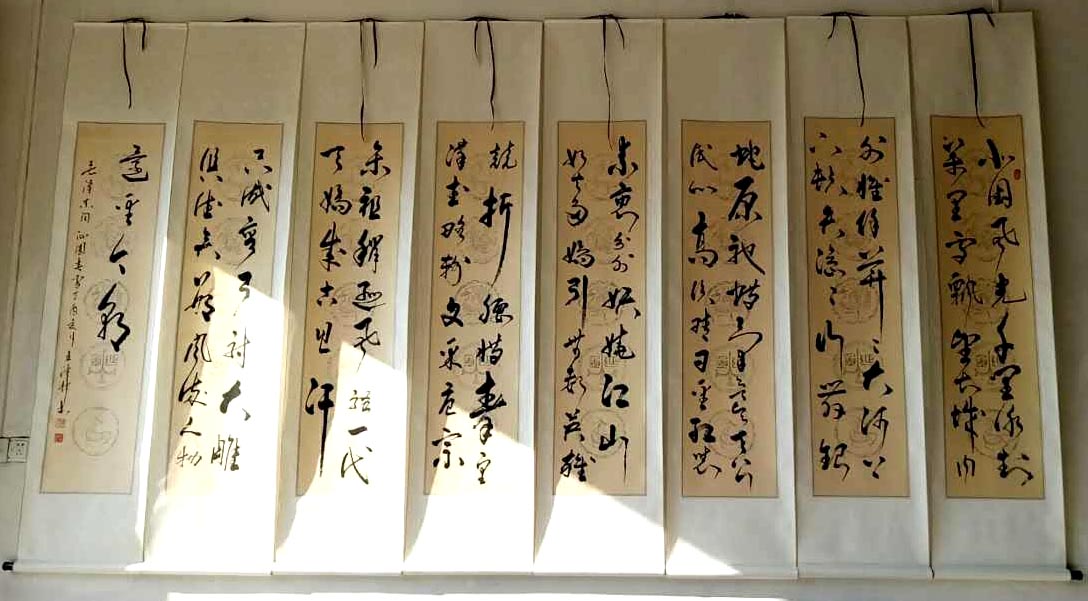 北国风光千里冰封
万里雪飘望长城内
外惟余莽莽大河上
下顿失滔滔山舞银
蛇原驰蜡象欲与天公
试比高须晴日看红装
素裹分外妖娆江山
如此多娇引无数英雄
竞折腰惜秦皇
汉武略输文采唐宗
宋祖稍逊风骚一代
天骄成吉思汗
只识弯弓射大雕
俱往矣数风流人物
还看今朝
毛泽东词沁园春雪